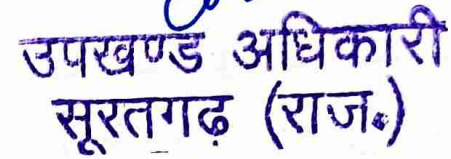 उपखण्ड अधिकारी
सूरतगढ़ (राज.)